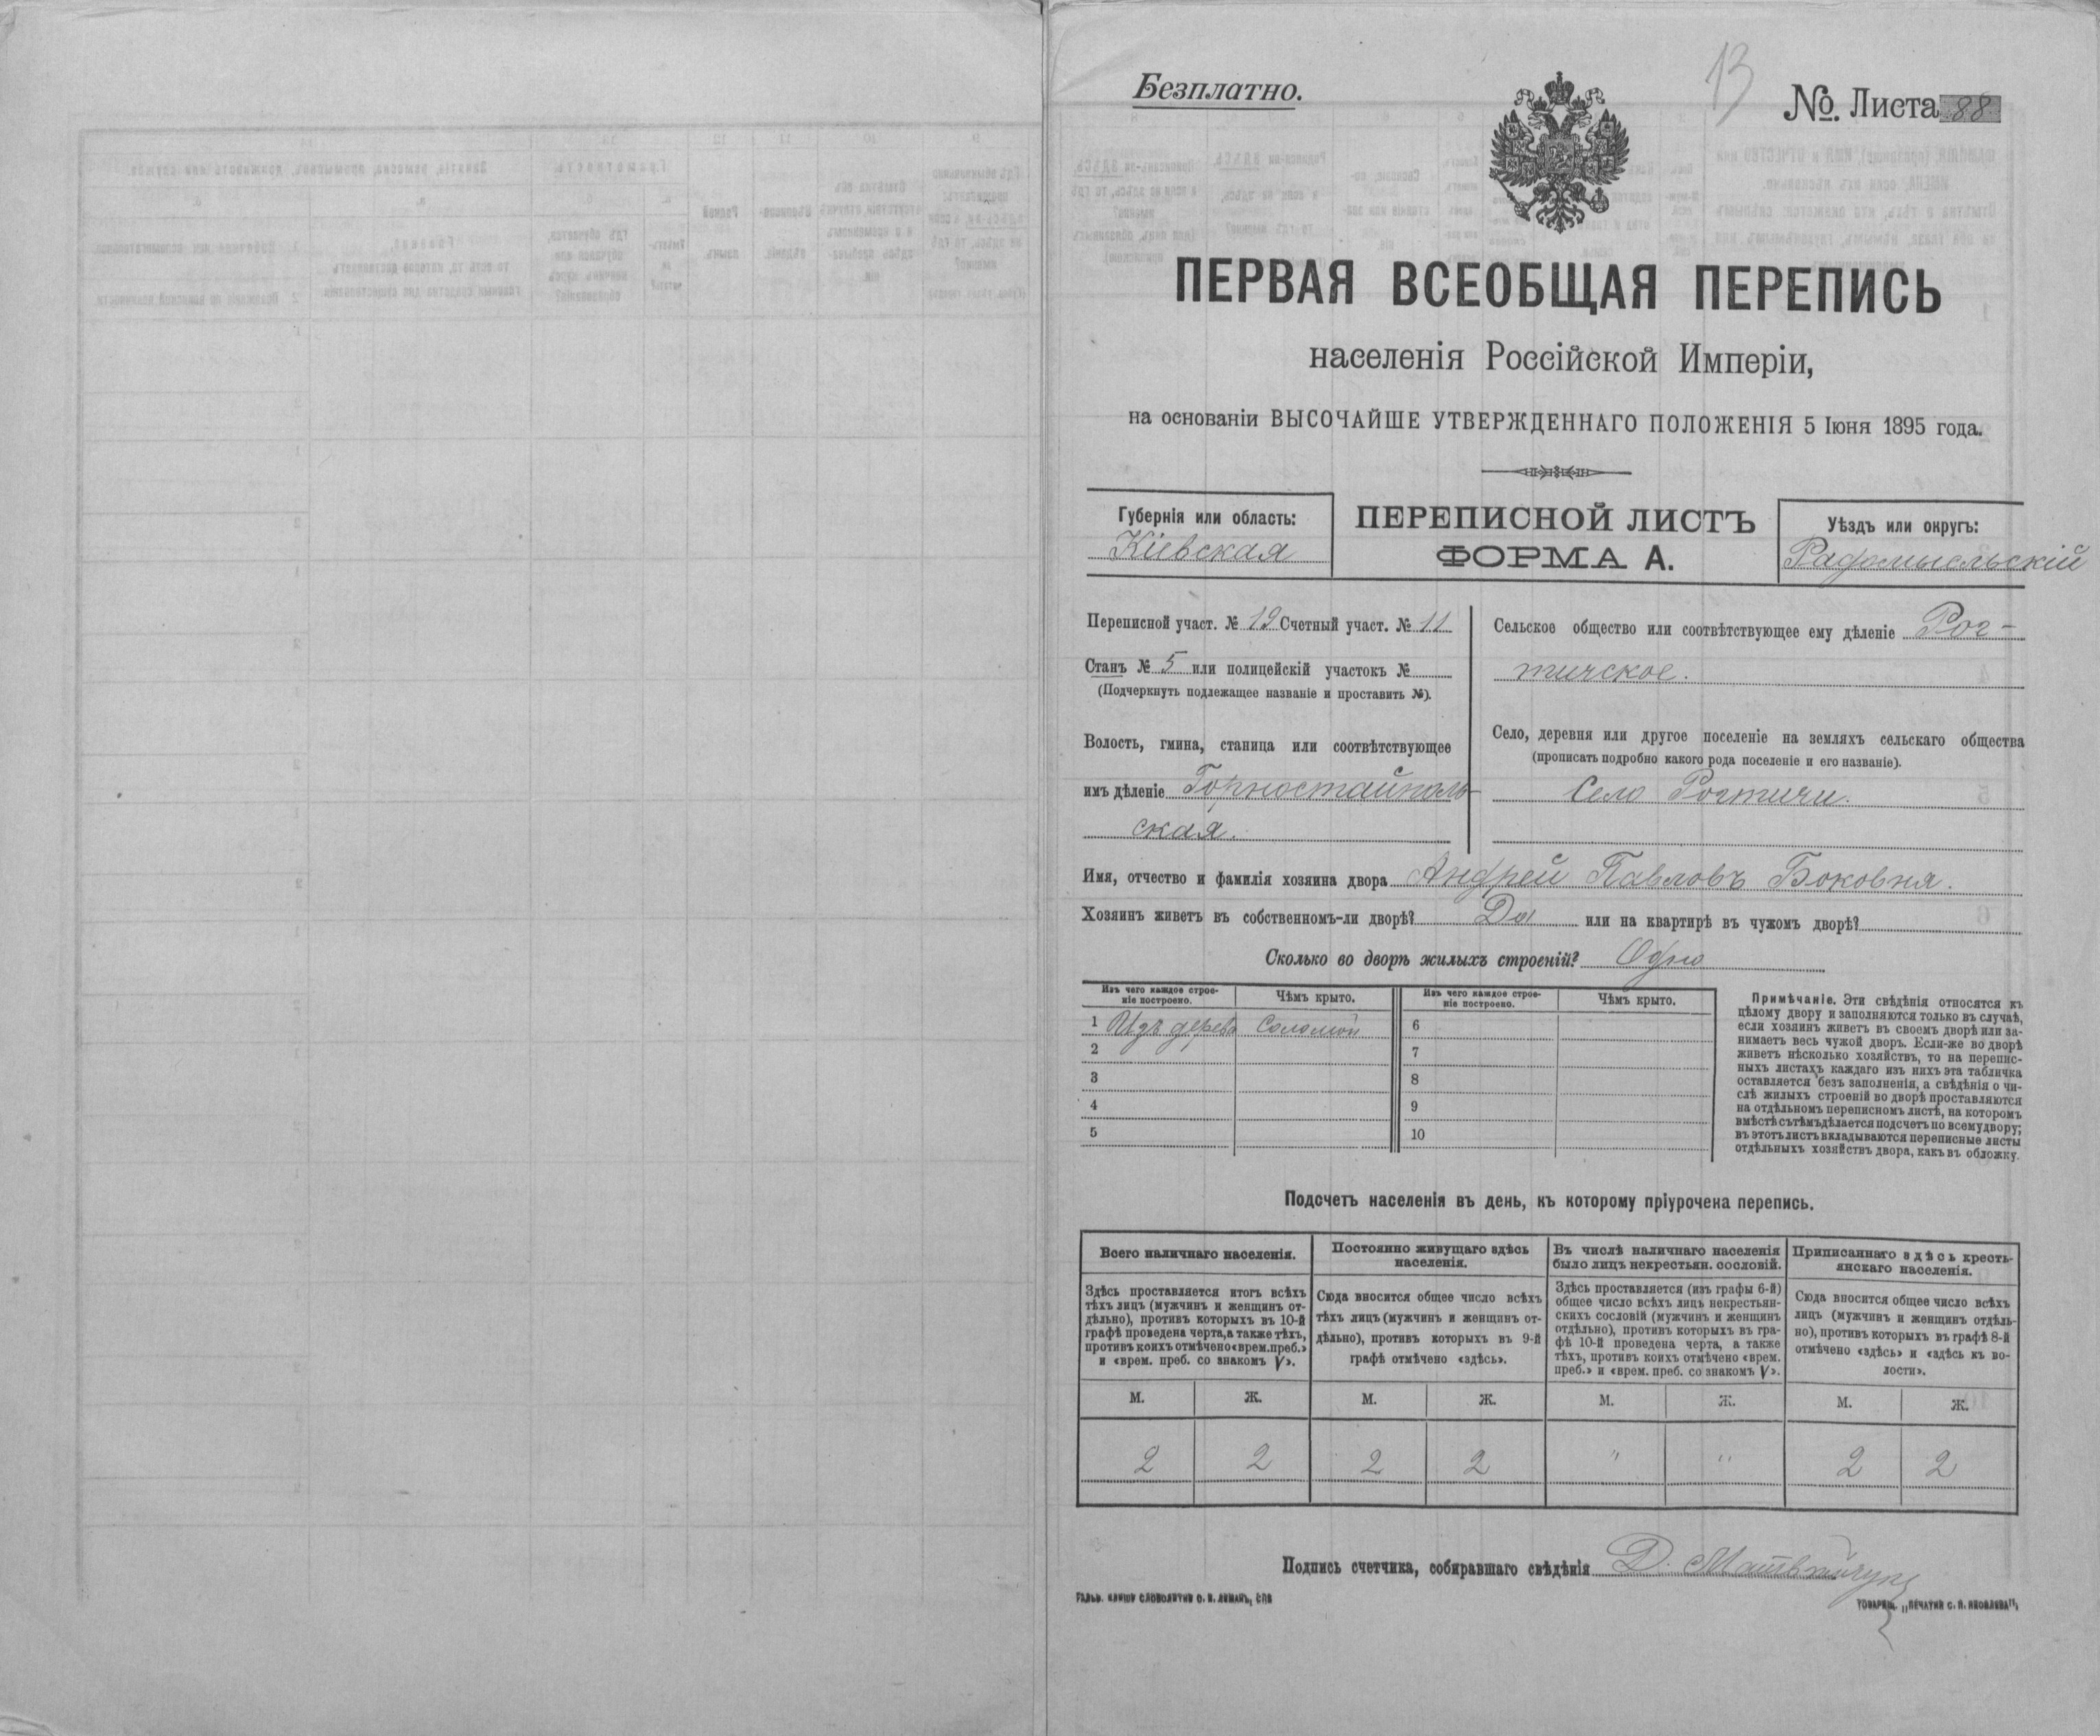 13
Безплатно.
№. Листа 88
ПЕРВАЯ ВСЕОБЩАЯ ПЕРЕПИСЬ
населенія Россійской Имперіи,
на основаніи ВЫСОЧАЙШЕ УТВЕРЖДЕННАГО ПОЛОЖЕНІЯ 5 Іюня 1895 года.
Губернія или область:
Кіевская
ПЕРЕПИСНОЙ ЛИСТЪ
ФОРМА А.
Уѣздъ или округъ:
Радомысльскій
Переписной участ. № 19 Счетный участ. № 11
Станъ № 5 или полицейскій участокъ №
(Подчеркнуть подлежащее названіе и проставить №).
Волость, гмина, станица или соотвѣтствующее
имъ дѣленіе Горностайполь-
ская.
Сельское общество или соотвѣтствующее ему дѣленіе Рог-
тичское.
Село, деревня или другое поселеніе на земляхъ сельскаго общества
(прописать подробно какого рода поселеніе и его названіе).
Село Рогтичи.
Имя, отчество и фамилія хозяина двора Андрей Павловъ Боковня.
Хозяинъ живетъ въ собственномъ-ли дворѣ? Да или на квартирѣ въ чужомъ дворѣ?
Сколько во дворѣ жилыхъ строеній? Одно
Изъ чего каждое строе-
ніе построено.
Чѣмъ крыто.
Изъ чего каждое строе-
ніе построено.
Чѣмъ крыто.
1 Изъ дерева Соломой
2
3
4
5
6
7
8
9
10
Примѣчаніе. Эти свѣдѣнія относятся къ
цѣлому двору и заполняются только въ случаѣ,
если хозяинъ живетъ въ своемъ дворѣ или за-
нимаетъ весь чужой дворъ. Если-же во дворѣ
живетъ нѣсколько хозяйствъ, то на перепис-
ныхъ листахъ каждаго изъ нихъ эта табличка
оставляется безъ заполненія, а свѣдѣнія о чи-
слѣ жилыхъ строеній во дворѣ проставляются
на отдѣльномъ переписномъ листѣ, на которомъ
вмѣстѣ съ тѣмъ дѣлается подсчетъ по всему двору;
въ этотъ листъ вкладываются переписные листы
отдѣльныхъ хозяйствъ двора, какъ въ обложку.
Подсчетъ населенія въ день, къ которому пріурочена перепись.
Всего наличнаго населенія.
Здѣсь проставляется итогъ всѣхъ
тѣхъ лицъ (мужчинъ и женщинъ от-
дѣльно), противъ которыхъ въ 10-й
графѣ проведена черта, а также тѣхъ,
противъ коихъ отмѣчено «врем. преб.»
и «врем. преб. со знакомъ V».
Постоянно живущаго здѣсь
населенія.
Сюда вносится общее число всѣхъ
тѣхъ лицъ (мужчинъ и женщинъ от-
дѣльно), противъ которыхъ въ 9-й
графѣ отмѣчено «здѣсь».
Въ числѣ наличнаго населенія
было лицъ некрестьян. сословій.
Здѣсь проставляется (изъ графы 6-й)
общее число всѣхъ лицъ некрестьян-
скихъ сословій (мужчинъ и женщинъ
отдѣльно), противъ которыхъ въ гра-
фѣ 10-й проведена черта, а также
тѣхъ, противъ коихъ отмѣчено «врем.
преб.» и «врем. преб. со знакомъ V».
Приписаннаго здѣсь кресть-
янскаго населенія.
Сюда вносится общее число всѣхъ
лицъ (мужчинъ и женщинъ отдѣль-
но), противъ которыхъ въ графѣ 8-й
отмѣчено «здѣсь» и «здѣсь къ во-
лости».
М. Ж. М. Ж. М. Ж. М. Ж.
2 2 2 2 " " 2 2
Подпись счетчика, собиравшаго свѣдѣнія Д. Матвѣйчукъ
ГАЛЬВ. КЛИШЭ СЛОВОЛИТНИ О. И. ЛЕМАНЪ, СПБ
ТОВАРИЩ. „ПЕЧАТНИ С. П. ЯКОВЛЕВА",